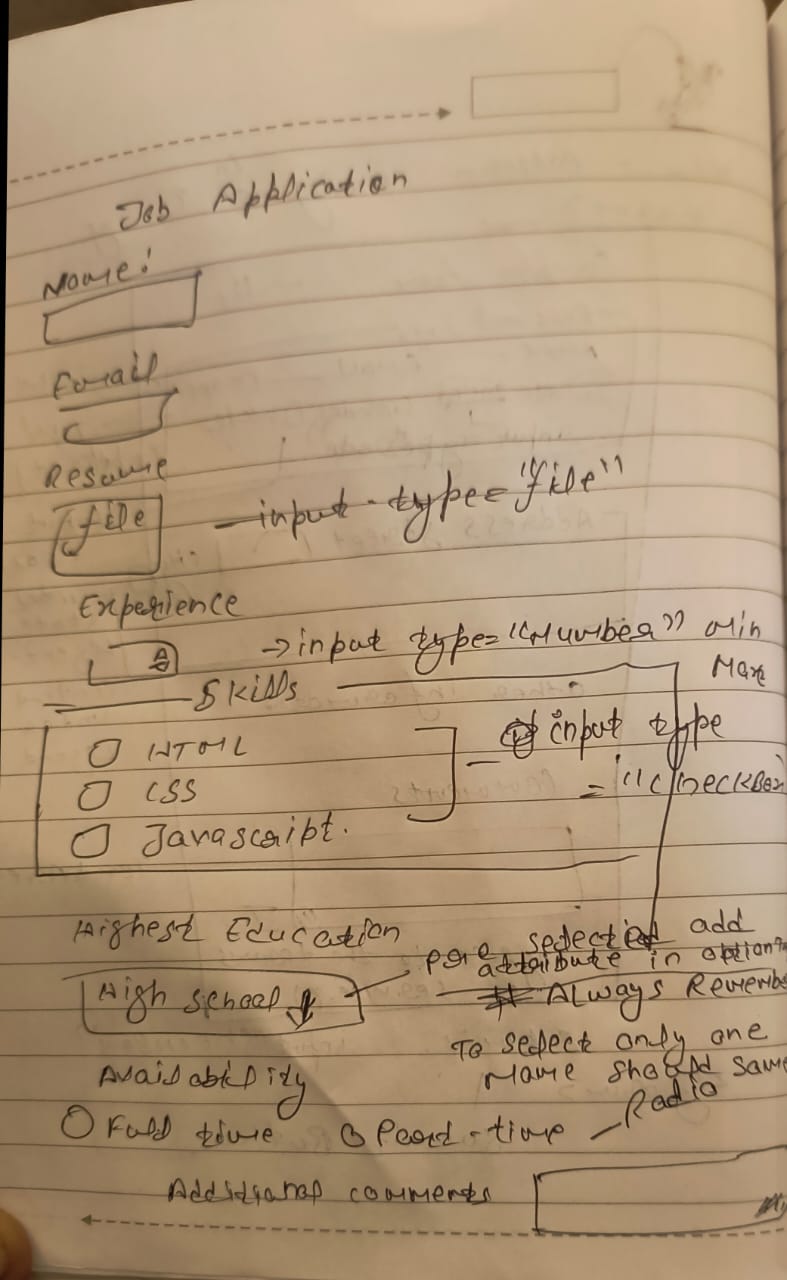 Job Application
Name:
Email
Resume
file
input type="file"
Experience
→ input type="Number" Min
Max
Skills
HTML
CSS
Javascript.
input type
= "CheckBox
Highest Education
High school ↓
pre selected add
attribute in option
# Always Rememb
To select only one
Name should same
Availability
Full time
Part-time
Radio
Additional comments